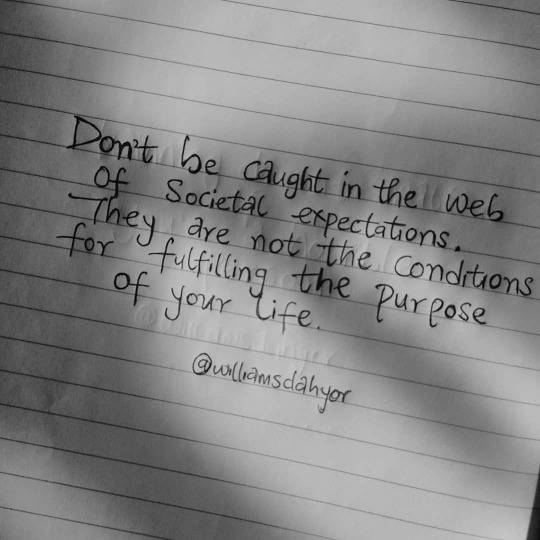 Don't be caught in the web
of Societal expectations.
They are not the conditions
for fulfilling the purpose
of your life.
@williamsdahyor